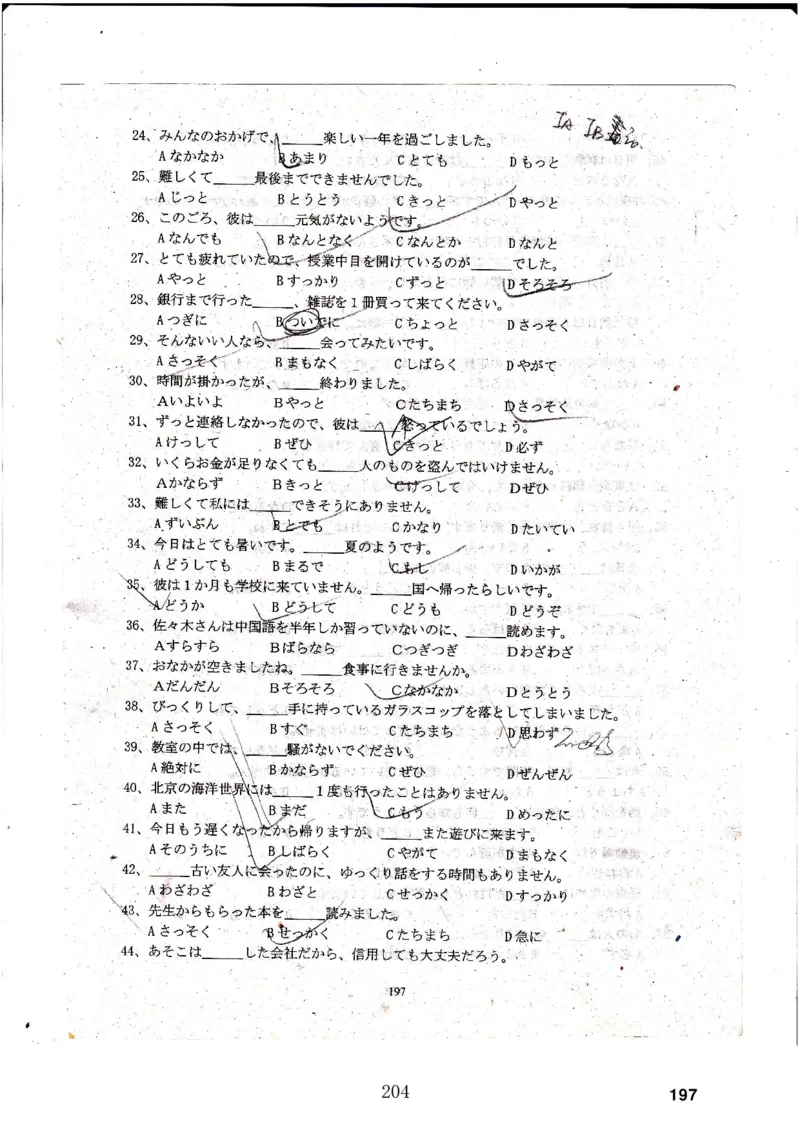 24、みんなのおかげで、_____楽しい一年を過ごしました。
Aなかなか Bあまり Cとても Dもっと
25、難しくて_____最後までできませんでした。
Aじっと Bとうとう Cきっと Dやっと
26、このごろ、彼は_____元気がないようです。
Aなんでも Bなんとなく Cなんとか Dなんと
27、とても疲れていたので、授業中目を開けているのが_____でした。
Aやっと Bすっかり Cずっと Dそろそろ
28、銀行まで行った_____、雑誌を1冊買って来てください。
Aつぎに Bついでに Cちょっと Dさっそく
29、そんないい人なら、_____会ってみたいです。
Aさっそく Bまもなく Cしばらく Dやがて
30、時間が掛かったが、_____終わりました。
Aいよいよ Bやっと Cたちまち Dさっそく
31、ずっと連絡しなかったので、彼は_____怒っているでしょう。
Aけっして Bぜひ Cきっと D必ず
32、いくらお金が足りなくても_____人のものを盗んではいけません。
Aかならず Bきっと Cけっして Dぜひ
33、難しくて私には_____できそうにありません。
Aずいぶん Bとても Cかなり Dたいてい
34、今日はとても暑いです。_____夏のようです。
Aどうしても Bまるで Cもし Dいかが
35、彼は1か月も学校に来ていません。_____国へ帰ったらしいです。
Aどうか Bどうして Cどうも Dどうぞ
36、佐々木さんは中国語を半年しか習っていないのに、_____読めます。
Aすらすら Bばらなら Cつぎつぎ Dわざわざ
37、おなかが空きましたね。_____食事に行きませんか。
Aだんだん Bそろそろ Cなかなか Dとうとう
38、びっくりして、_____手に持っているガラスコップを落としてしまいました。
Aさっそく Bすぐ Cたちまち D思わず
39、教室の中では、_____騒がないでください。
A絶対に Bかならず Cぜひ Dぜんぜん
40、北京の海洋世界には_____1度も行ったことはありません。
Aまた Bまだ Cもう Dめったに
41、今日もう遅くなったから帰りますが、_____また遊びに来ます。
Aそのうちに Bしばらく Cやがて Dまもなく
42、_____古い友人に会ったのに、ゆっくり話をする時間もありません。
Aわざわざ Bわざと Cせっかく Dすっかり
43、先生からもらった本を_____読みました。
Aさっそく Bせっかく Cたちまち D急に
44、あそこは_____した会社だから、信用しても大丈夫だろう。
197
204
197